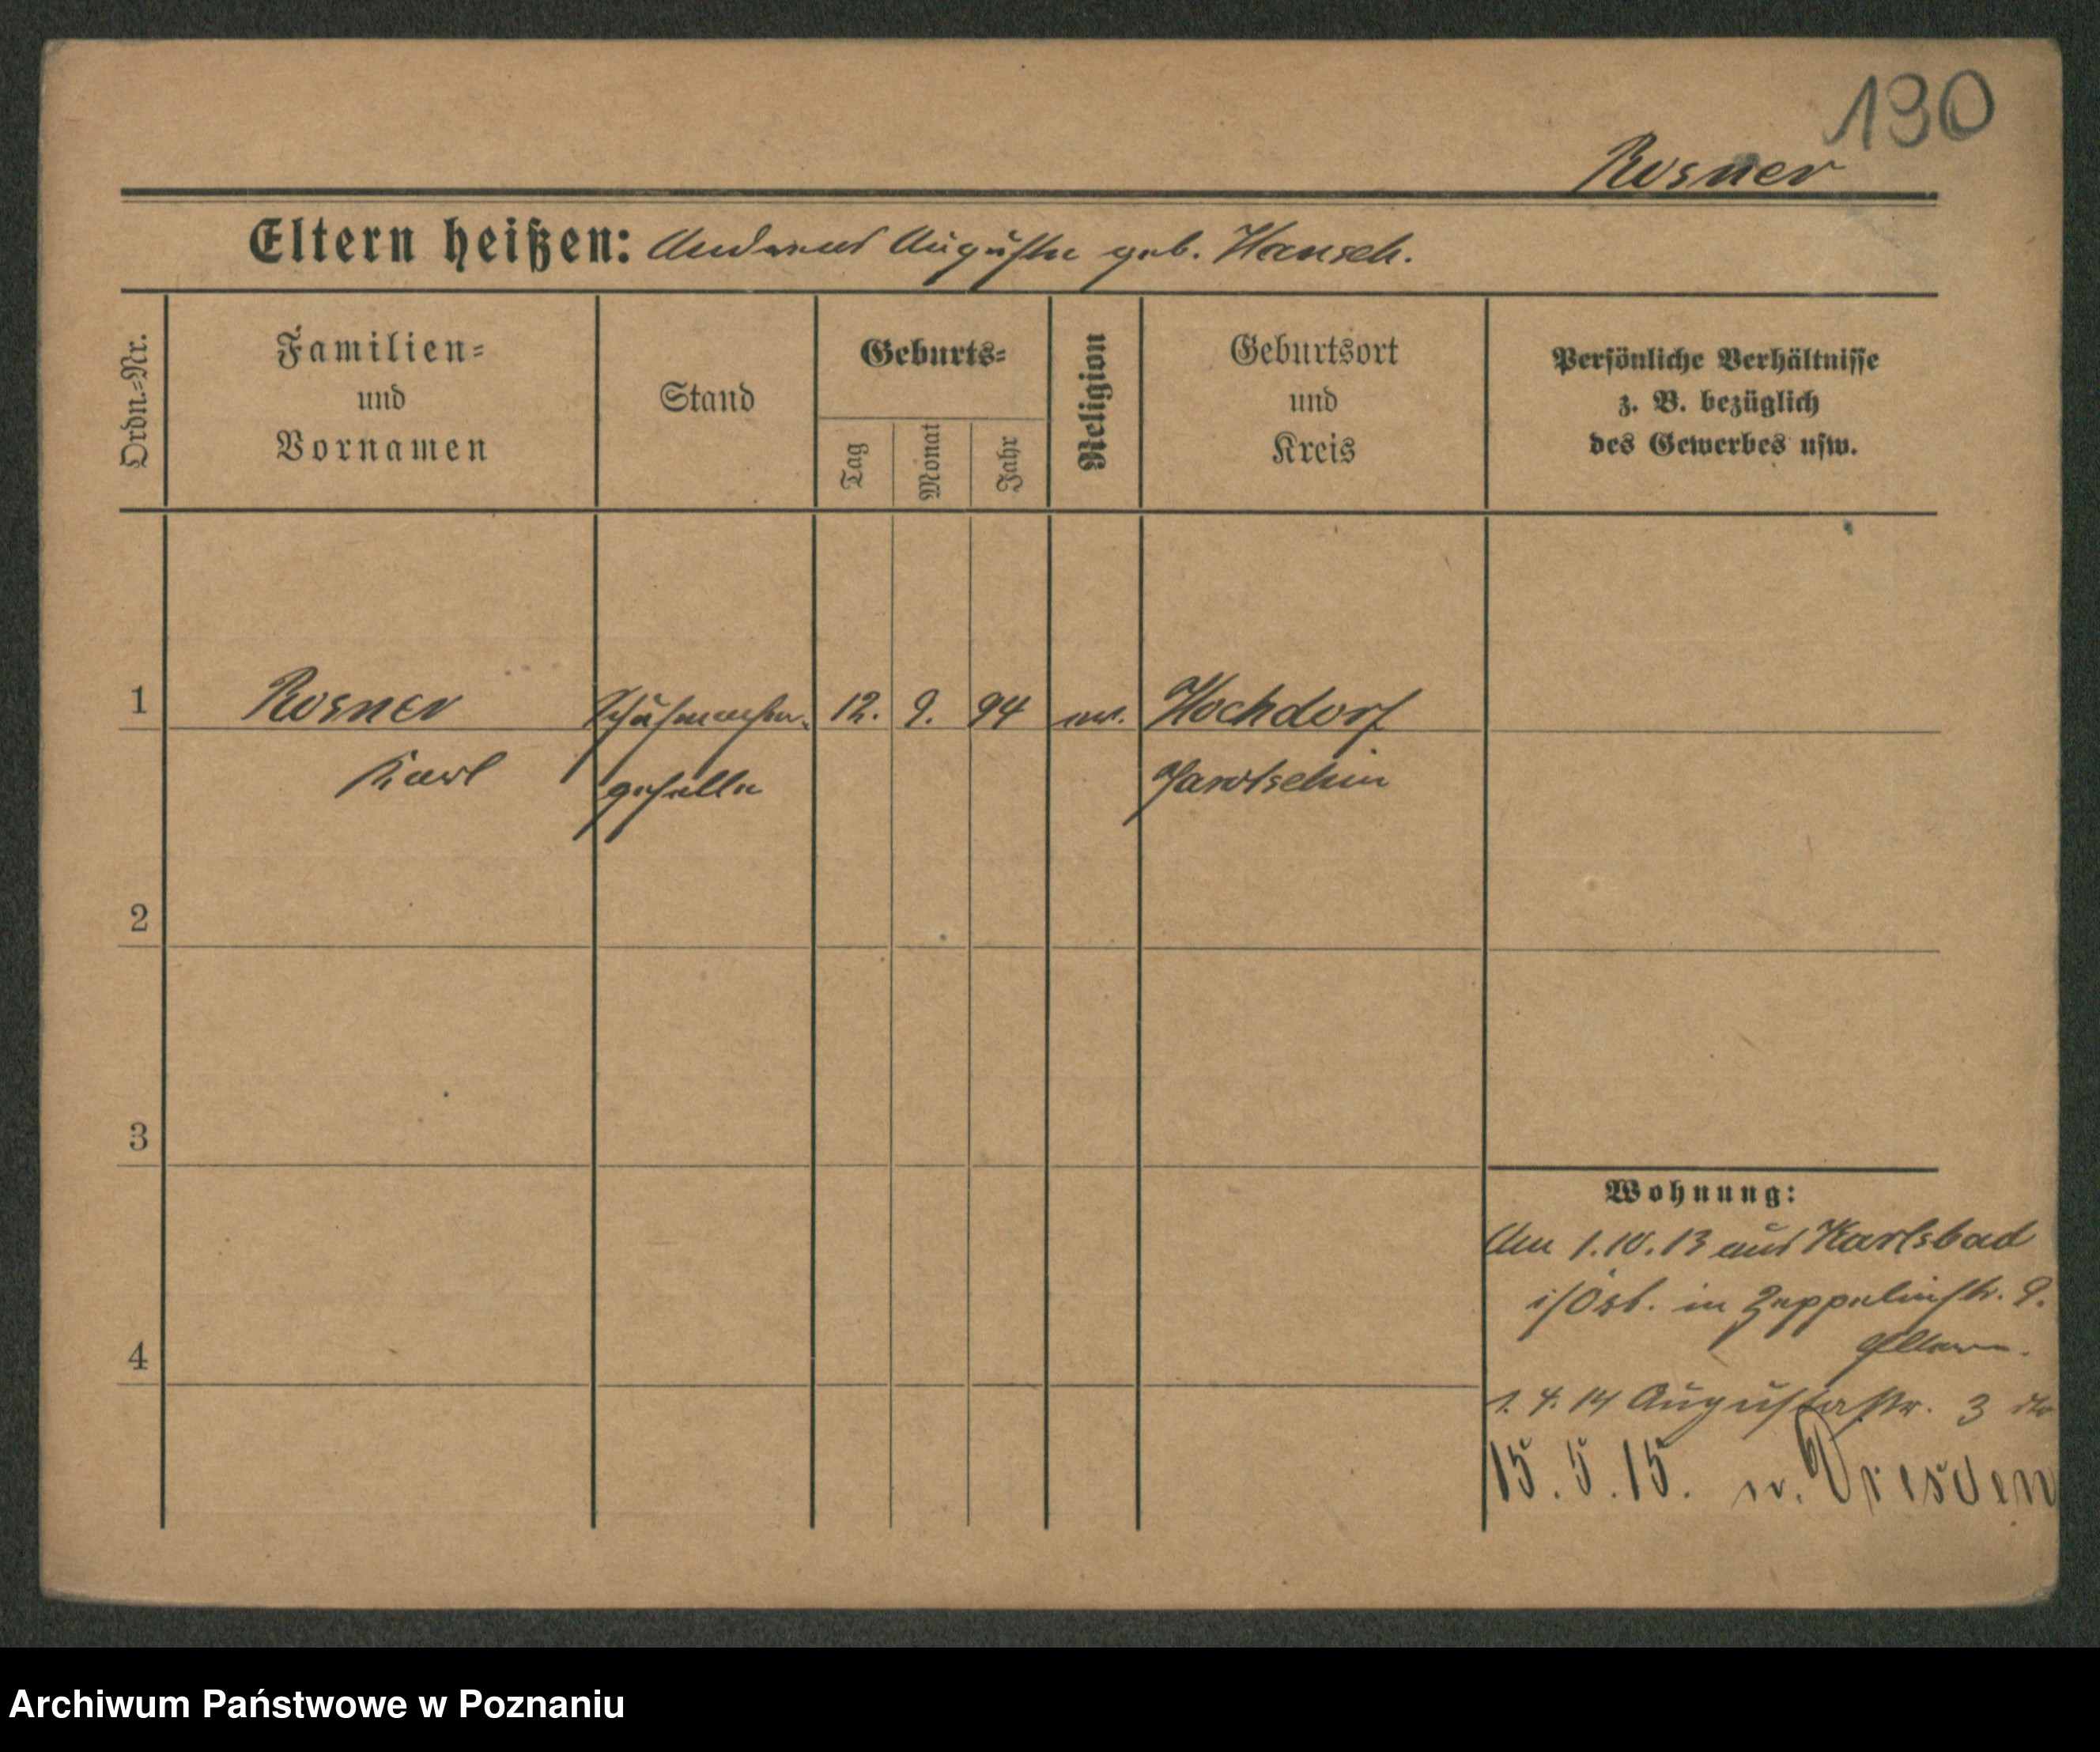 130
Rosner
Eltern heißen: Andreas Auguste geb. Hansch.
Ordn.=Nr.
Familien=
und
Vornamen
Stand
Geburts=
Tag
Monat
Jahr
Religion
Geburtsort
und
Kreis
Persönliche Verhältnisse
z. B. bezüglich
des Gewerbes usw.
1 Rosner Schuhmacher- 12. 9. 94 ev. Hochdorf
Karl geselle Jarotschin
2
3
4
Wohnung:
Am 1.10.13 aus Karlsbad
i/Öst. in Zeppelinstr. 9.
1.4.14 Augustastr. 3
15.5.15. n. Dresden
Archiwum Państwowe w Poznaniu